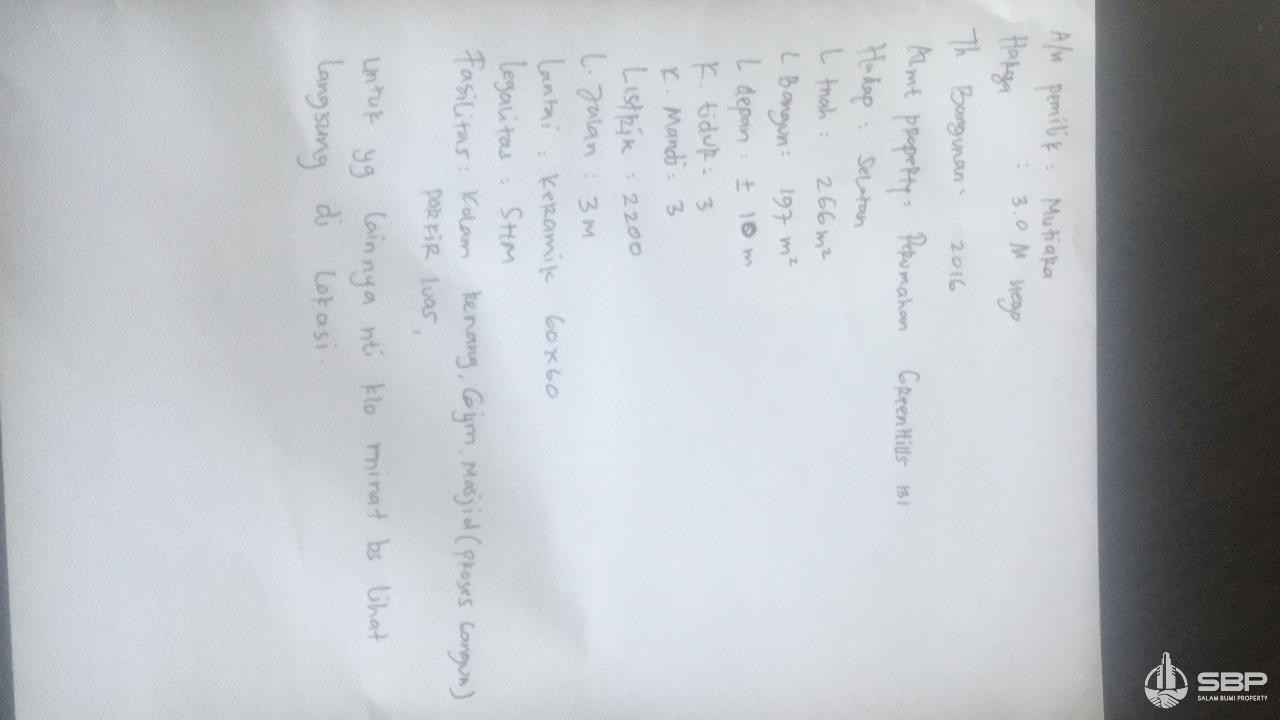 A/n pemilik : Mutiara
Harga : 3.0 M nego
Th Bangunan : 2016
Almt property : Perumahan GreenHills B1
Hadap : Selatan
L tnah : 266 m²
L Bangun : 197 m²
L depan : ± 10 m
K. tidur : 3
K. Mandi : 3
Listrik : 2200
L. Jalan : 3 M
Lantai : keramik 60x60
Legalitas : SHM
Fasilitas : Kolam renang, Gym, Masjid (proses bangun)
parkir luas,
untuk yg lainnya nti klo minat bs lihat
langsung di lokasi.
SBP
SALAM BUMI PROPERTY